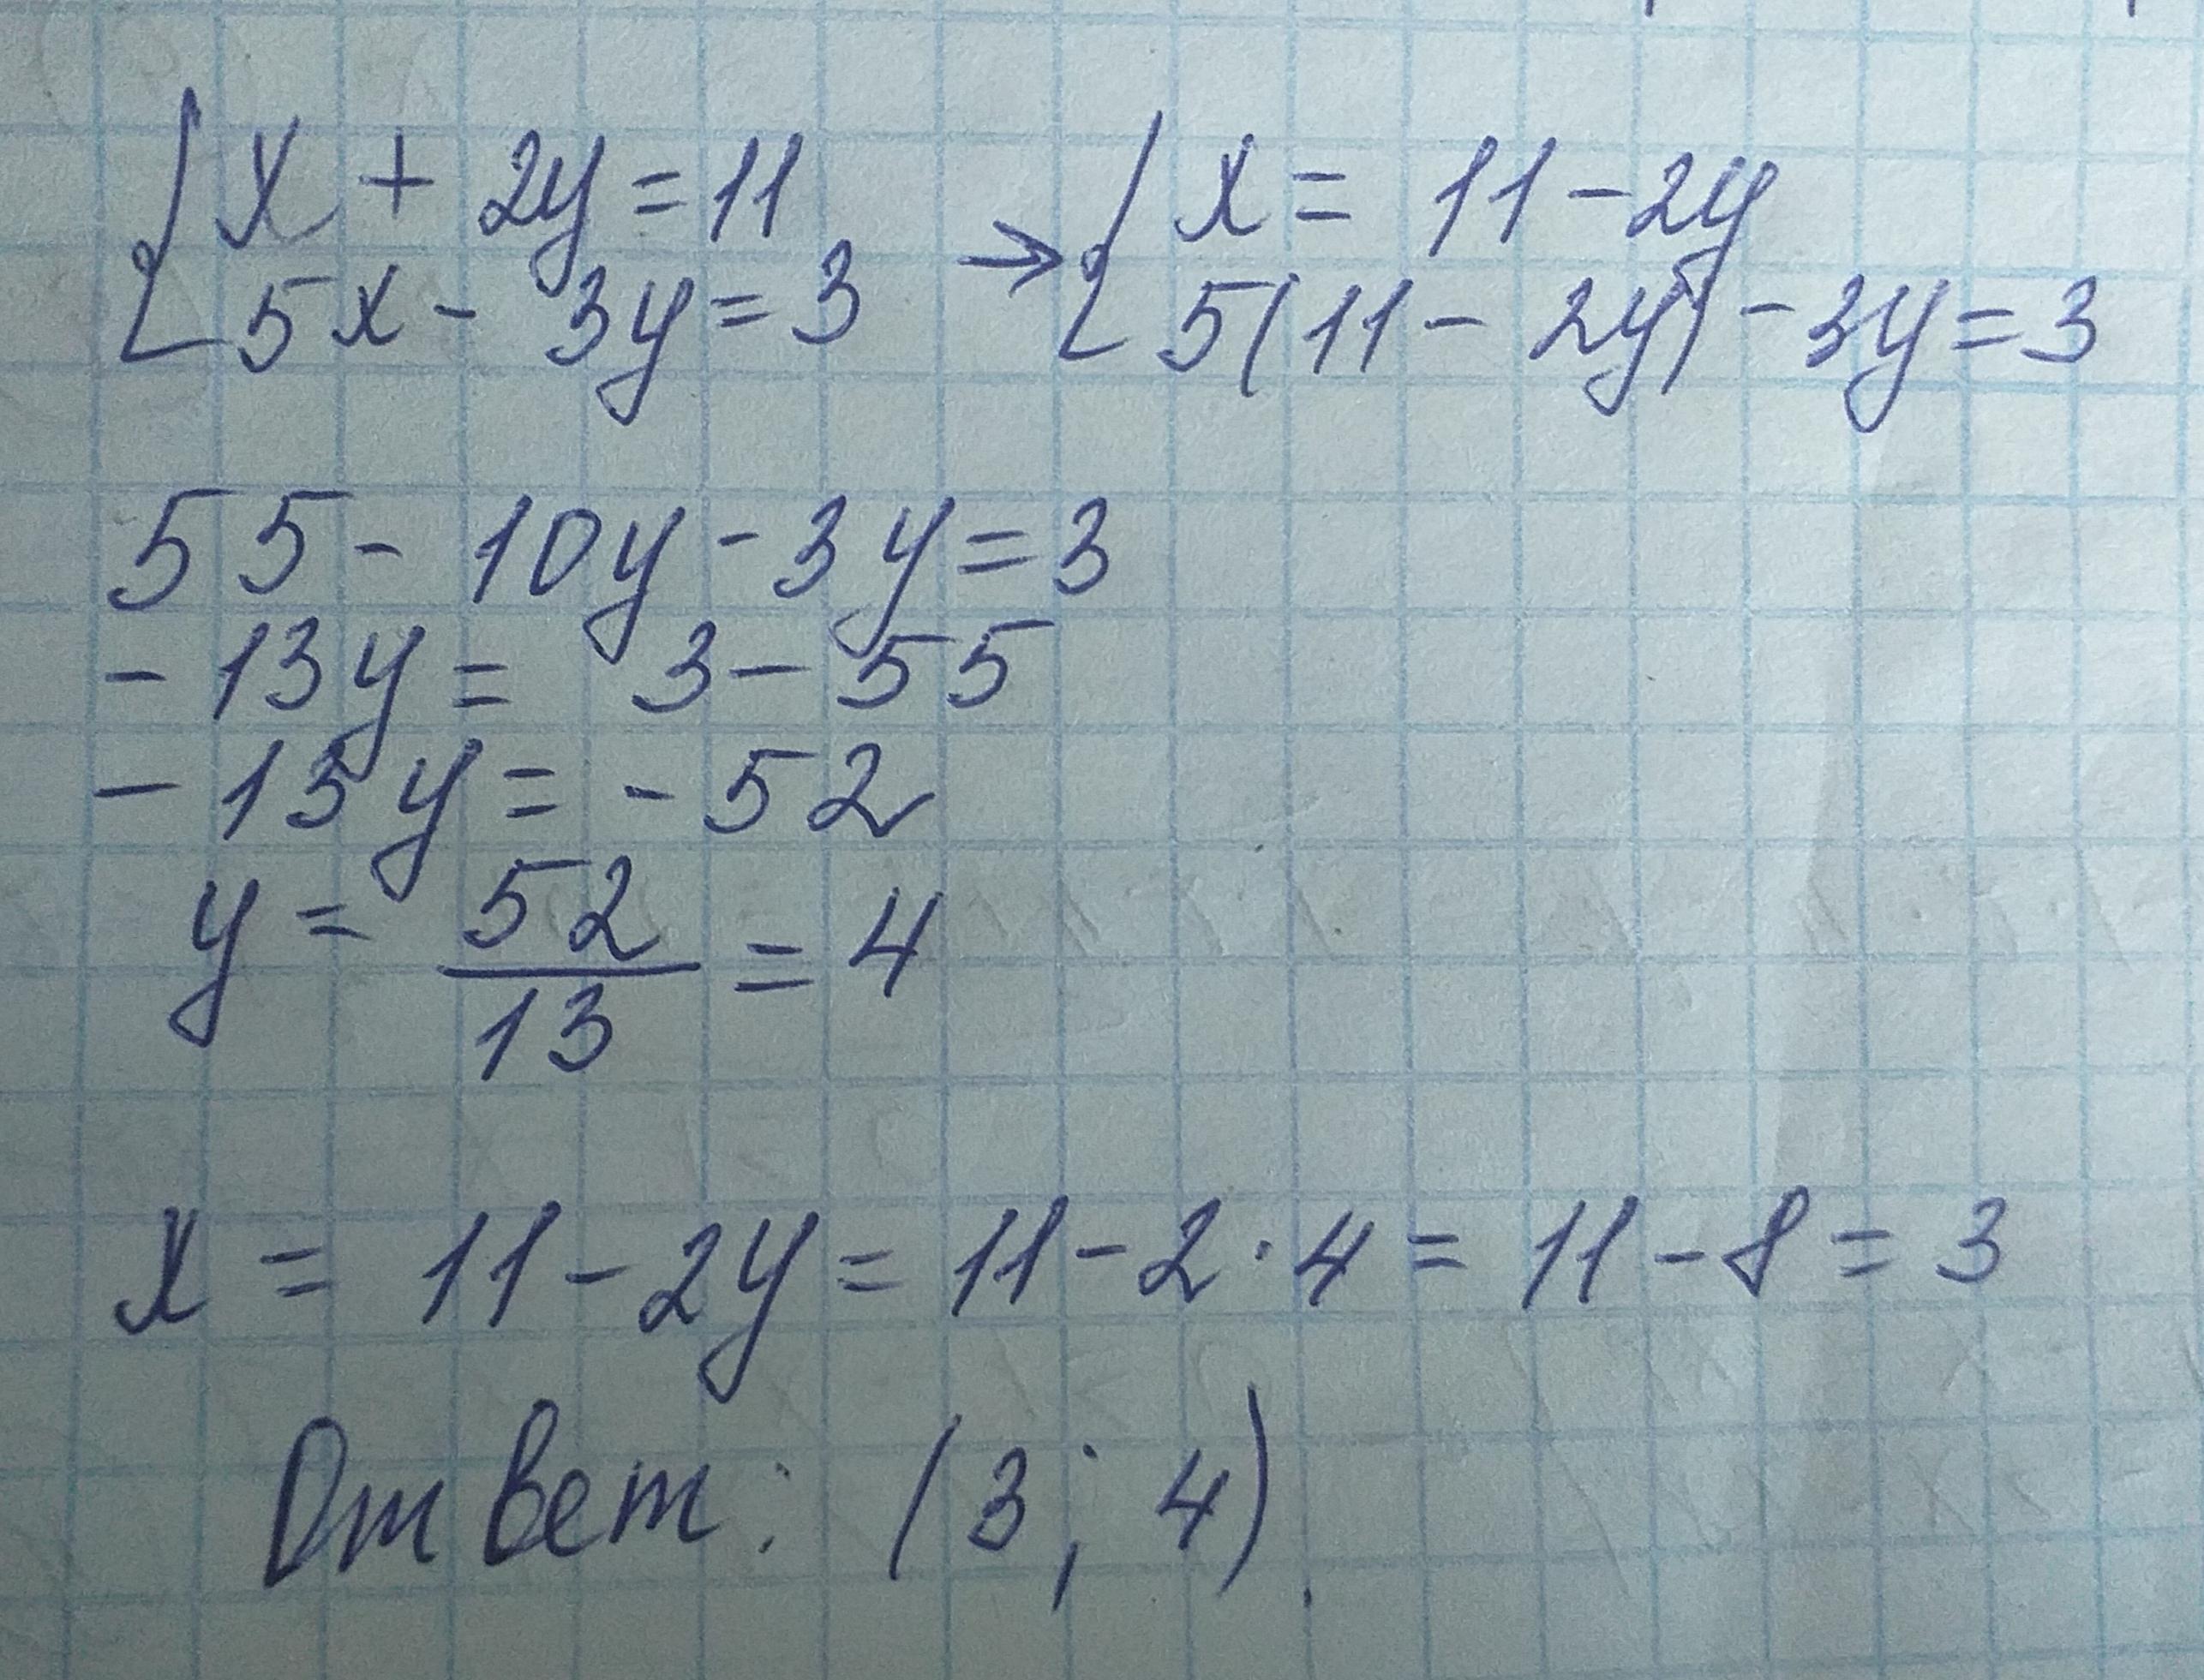 { x + 2y = 11 → { x = 11 - 2y
5x - 3y = 3 5(11 - 2y) - 3y = 3
55 - 10y - 3y = 3
- 13y = 3 - 55
- 13y = - 52
y = 52/13 = 4
x = 11 - 2y = 11 - 2 · 4 = 11 - 8 = 3
Ответ: (3; 4).